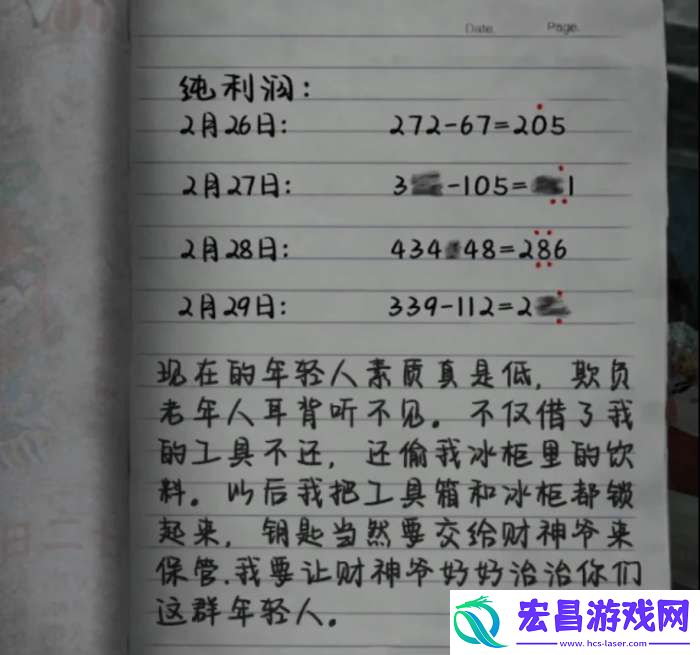 Date. Page.
纯利润:
2月26日: 272-67=205
2月27日: 3 -105= 1
2月28日: 434 48=286
2月29日: 339-112=2
现在的年轻人素质真是低，欺负
老年人耳背听不见。不仅借了我
的工具不还，还偷我冰柜里的饮
料。以后我把工具箱和冰柜都锁
起来，钥匙当然要交给财神爷来
保管.我要让财神爷好好治治你们
这群年轻人。
宏昌游戏网
www.hcs-laser.com